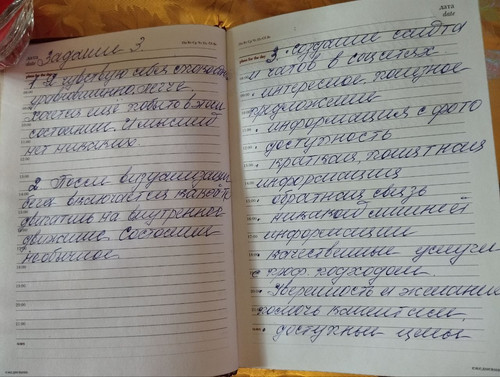 Задание 3.
1 Я чувствую себя спокойно
уравновешенно, легче,
хочется ещё побыть в этом
состоянии. И мыслей
нет никаких.
2. После визуализации
бега включается какой-то
двигатель на внутреннее
движение. Состояние
необычное
дата
date
3. Создание сайта
и чатов в соцсетях
• интересное полезное
предложение
• информация с фото
• доступность
• краткая, понятная
информация
• обратная связь
• никакой лишней
информации
• качественные услуги
с проф. подходом.
• Уверенность и желание
помочь клиентам.
• доступные цены